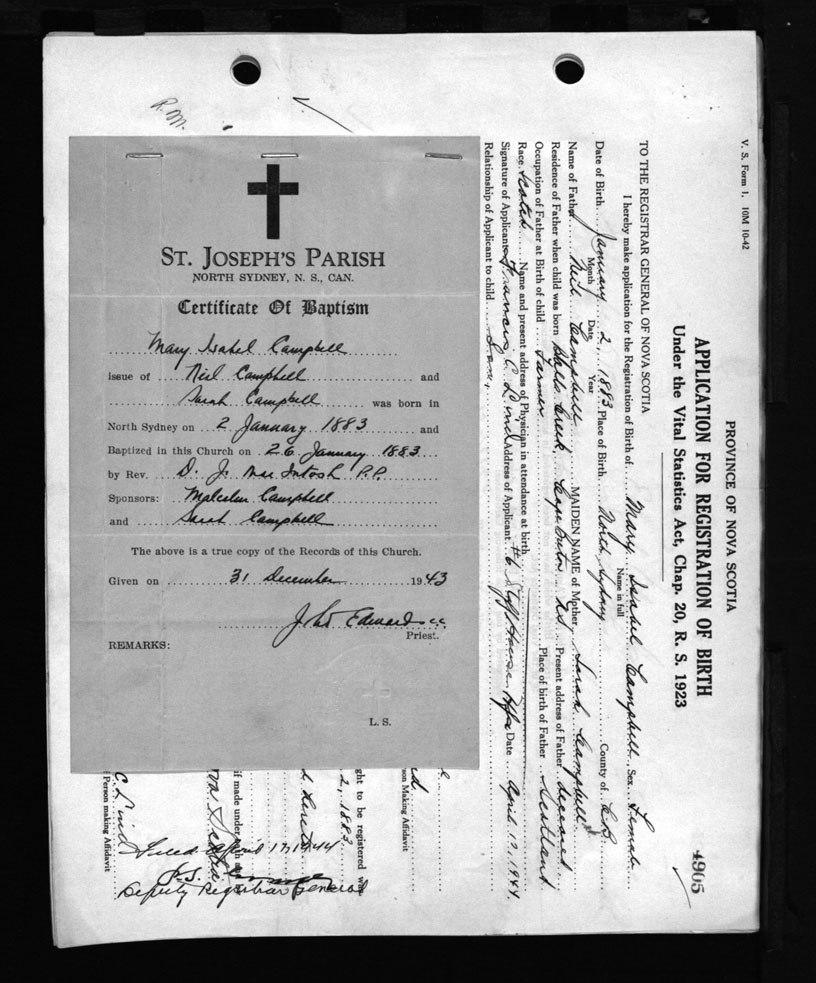 R.M.
ST. JOSEPH'S PARISH
NORTH SYDNEY, N. S., CAN.
Certificate Of Baptism
Mary Isabel Campbell
issue of Neil Campbell and
Sarah Campbell was born in
North Sydney on 2 January 1883 and
Baptized in this Church on 26 January 1883
by Rev. D. J. MacIntosh P.P.
Sponsors: Malcolm Campbell
and Sarah Campbell
The above is a true copy of the Records of this Church.
Given on 31 December 1943
Edward c.c.
Priest.
REMARKS:
L. S.
V. S. Form 1, 10M 10-42
PROVINCE OF NOVA SCOTIA
APPLICATION FOR REGISTRATION OF BIRTH
Under the Vital Statistics Act, Chap. 20, R. S. 1923
4905
TO THE REGISTRAR GENERAL OF NOVA SCOTIA
I hereby make application for the Registration of Birth of Mary Isabel Campbell Sex Female
Name in full
Date of Birth January 2, 1883 Place of Birth North Sydney County of C.B.
Month Date Year
Name of Father Neil Campbell MAIDEN NAME of Mother Sarah Campbell
Residence of Father when child was born Creek, Cape Breton Present address of Father deceased
Occupation of Father at Birth of child Farmer Place of birth of Father Scotland
Race Scotch Name and present address of Physician in attendance at birth
Signature of Applicant Francis C. Address of Applicant #6 House Date April 17, 1944
Relationship of Applicant to child Son
son Making Affidavit
ght to be registered wa
2, 1883
if made under
Person making Affidavit
Filed April 17 1944
Deputy Registrar General